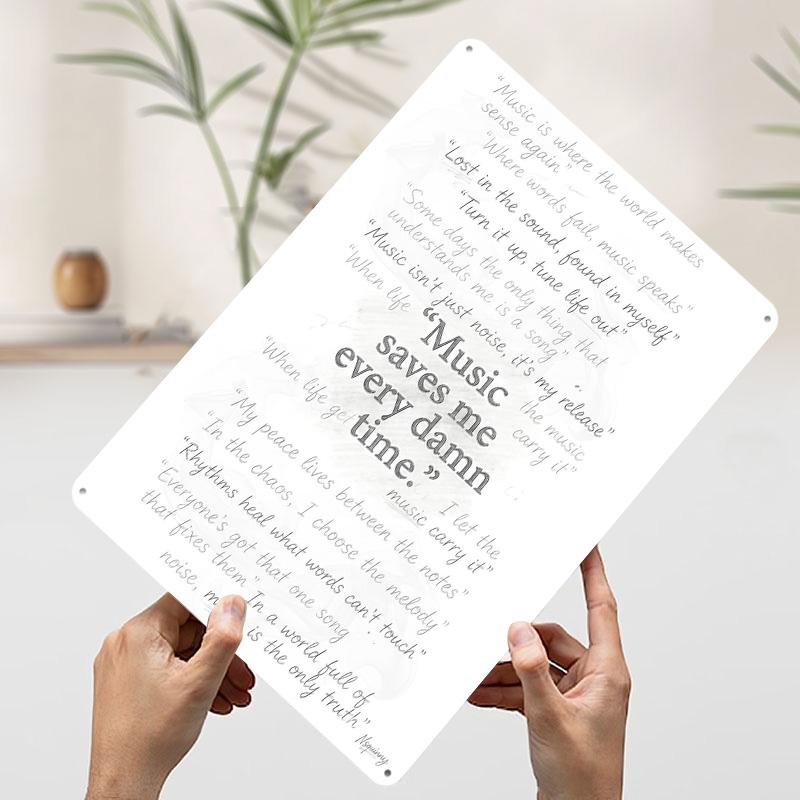 “Music is where the world makes
sense again.”
“Where words fail, music speaks”
“Lost in the sound, found in myself”
“Turn it up, tune life out”
“Some days the only thing that
understands me is a song”
“Music isn't just noise, it's my release”
“When life the music
carry it”
“Music
saves me
every damn
time.”
“When life I let the
music carry it”
“My peace lives between the notes”
“In the chaos, I choose the melody”
“Rhythms heal what words can't touch”
“Everyone's got that one song
that fixes them” In a world full of
noise, is the only truth”